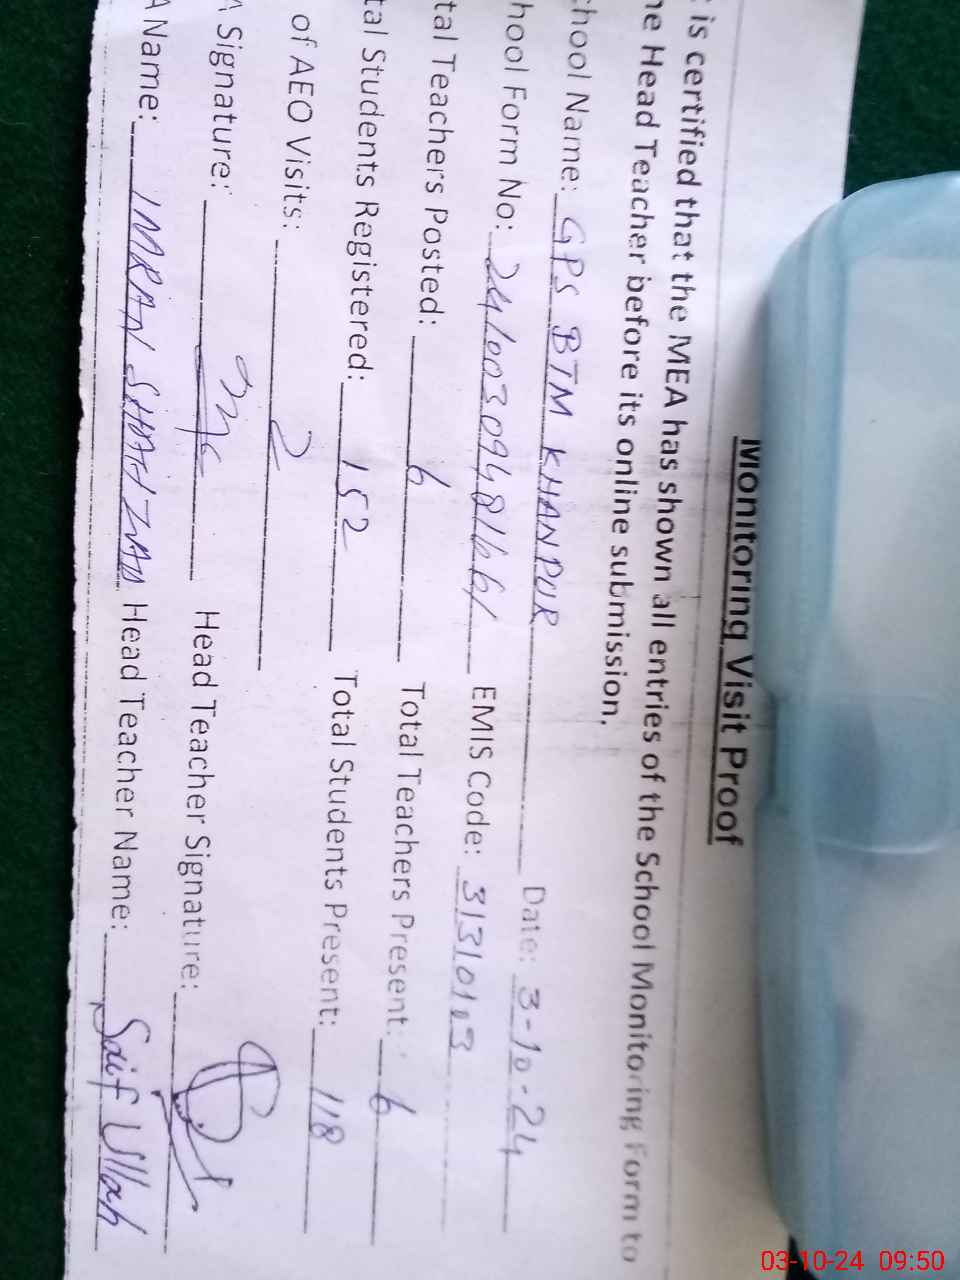 Monitoring Visit Proof
is certified that the MEA has shown all entries of the School Monitoring Form to
he Head Teacher before its online submission.
chool Name: GPS BTM KHANPUR Date: 3-10-24
hool Form No: EMIS Code:
tal Teachers Posted: 6 Total Teachers Present: 6
tal Students Registered: 152 Total Students Present: 118
of AEO Visits: 2
A Signature: Head Teacher Signature:
A Name: IMRAN SHAHZAD Head Teacher Name: Saif Ullah
03-10-24 09:50